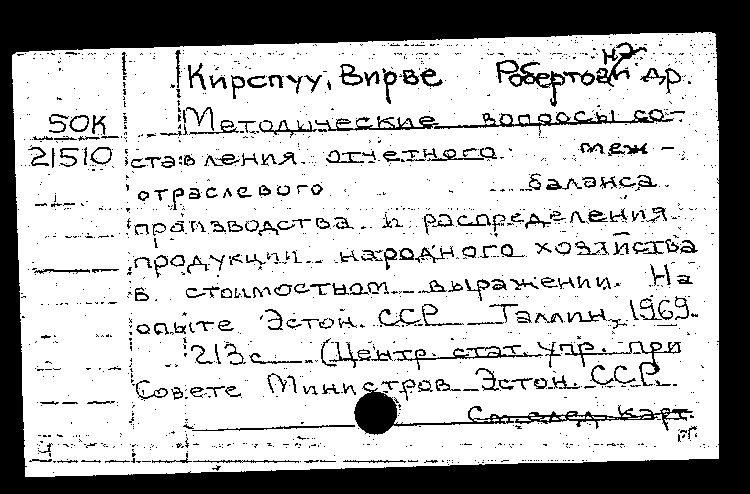 Кирспуу, Вирве Робертовна и др.
50К Методические вопросы со-
21510 ставления отчетного меж-
отраслевого баланса
производства и распределения
продукции народного хозяйства
в стоимостном выражении. На
опыте Эстон. ССР Таллин, 1969.
213с (Центр. стат. упр. при
Совете Министров Эстон. ССР.
См. след. карт.
рг.
Ч